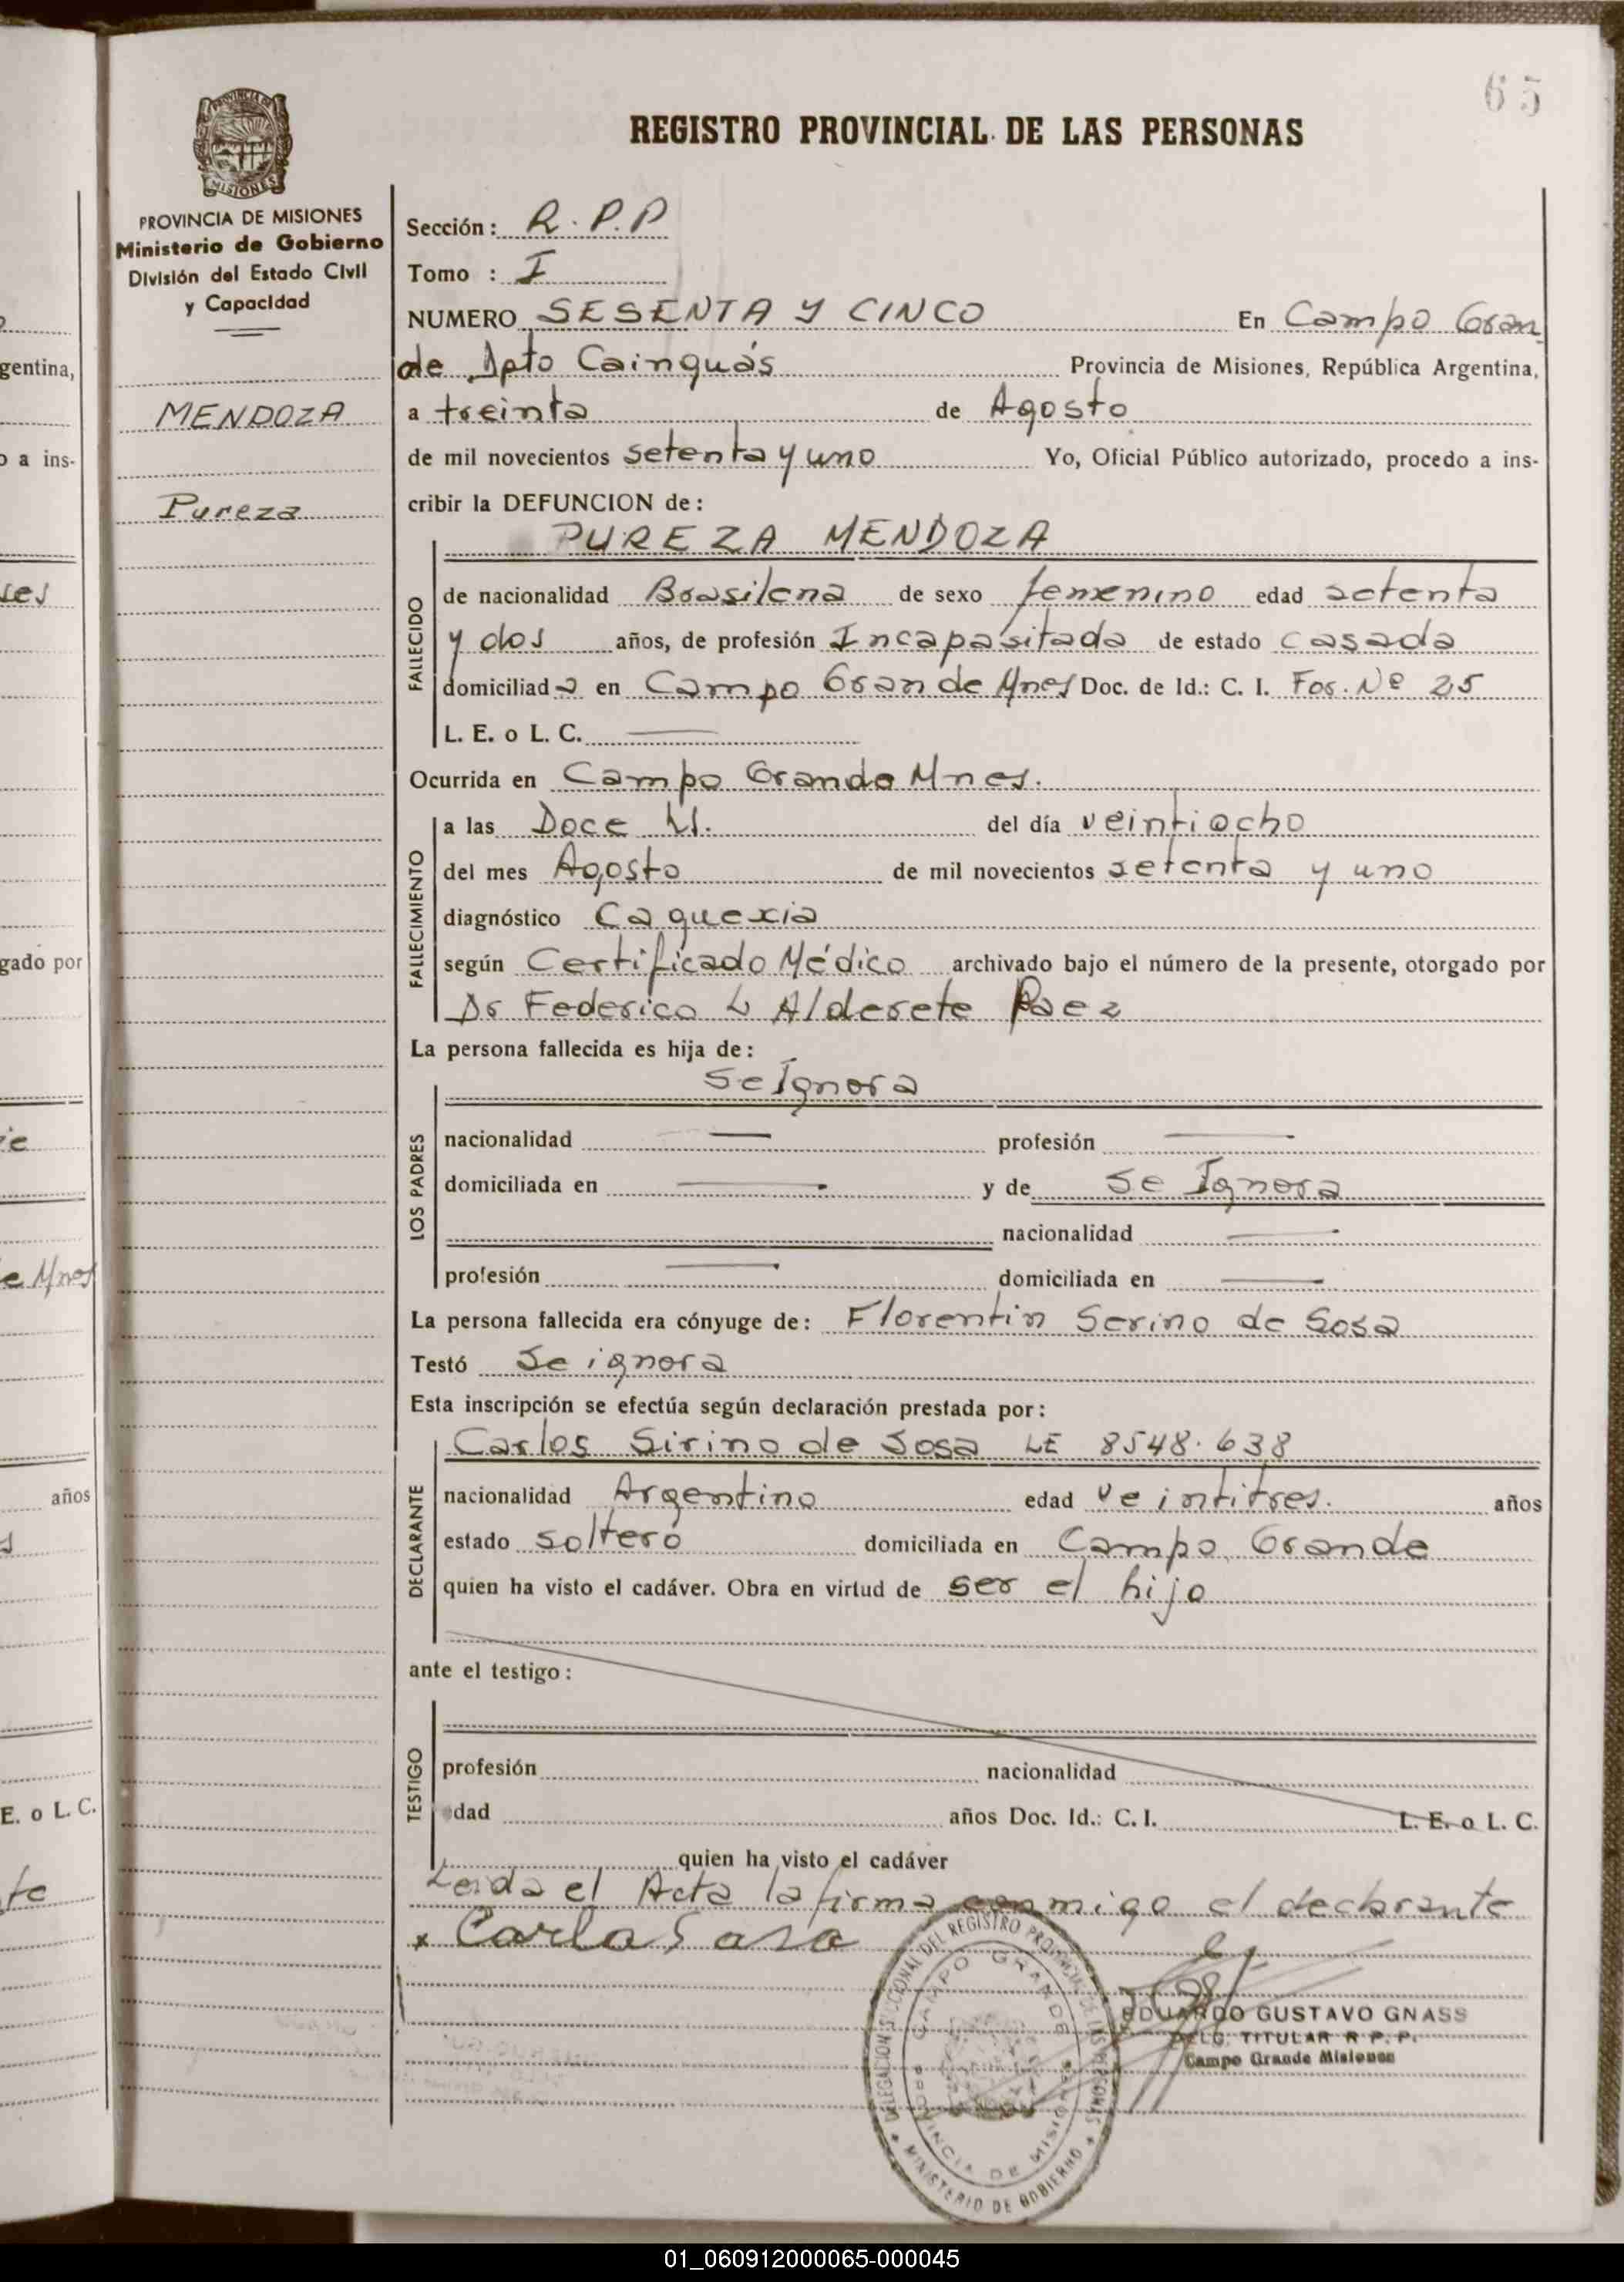 65
REGISTRO PROVINCIAL DE LAS PERSONAS
PROVINCIA DE MISIONES
MISIONES
PROVINCIA DE MISIONES
Ministerio de Gobierno
División del Estado Civil
y Capacidad
MENDOZA
Pureza
Sección: R.P.P
Tomo : I
NUMERO SESENTA Y CINCO En Campo Gran
de Dpto Cainguás Provincia de Misiones, República Argentina,
a treinta de Agosto
de mil novecientos setenta y uno Yo, Oficial Público autorizado, procedo a ins-
cribir la DEFUNCION de:
PUREZA MENDOZA
FALLECIDO
de nacionalidad Brasilena de sexo femenino edad setenta
y dos años, de profesión Incapasitada de estado casada
domiciliad a en Campo Grande Mnes Doc. de Id.: C. I. For. Nº 25
L. E. o L. C.
Ocurrida en Campo Grande Mnes.
FALLECIMIENTO
a las Doce hs. del día veintiocho
del mes Agosto de mil novecientos setenta y uno
diagnóstico Caquexia
según Certificado Médico archivado bajo el número de la presente, otorgado por
Dr Federico L Alderete Paez
La persona fallecida es hija de:
Se Ignora
LOS PADRES
nacionalidad — profesión —
domiciliada en — y de Se Ignora
nacionalidad —
profesión — domiciliada en —
La persona fallecida era cónyuge de: Florentin Serino de Sosa
Testó Se ignora
Esta inscripción se efectúa según declaración prestada por:
Carlos Sirino de Sosa LE 8548.638
DECLARANTE
nacionalidad Argentino edad veintitres. años
estado soltero domiciliada en Campo Grande
quien ha visto el cadáver. Obra en virtud de ser el hijo
ante el testigo:
TESTIGO
profesión nacionalidad
edad años Doc. Id.: C. I. L. E. o L. C.
quien ha visto el cadáver
Leida el Acta la firma conmigo el declarante
x Carlo Sosa
DELEGACION SECCIONAL DEL REGISTRO PROVINCIAL DE LAS PERSONAS
CAMPO GRANDE
PROVINCIA DE MISIONES
MINISTERIO DE GOBIERNO
EDUARDO GUSTAVO GNASS
DELG. TITULAR R. P. P.
Campo Grande Misiones
gentina,
o a ins-
ses
gado por
ie
e Mnes
años
s
E. o L. C.
te
01_060912000065-000045